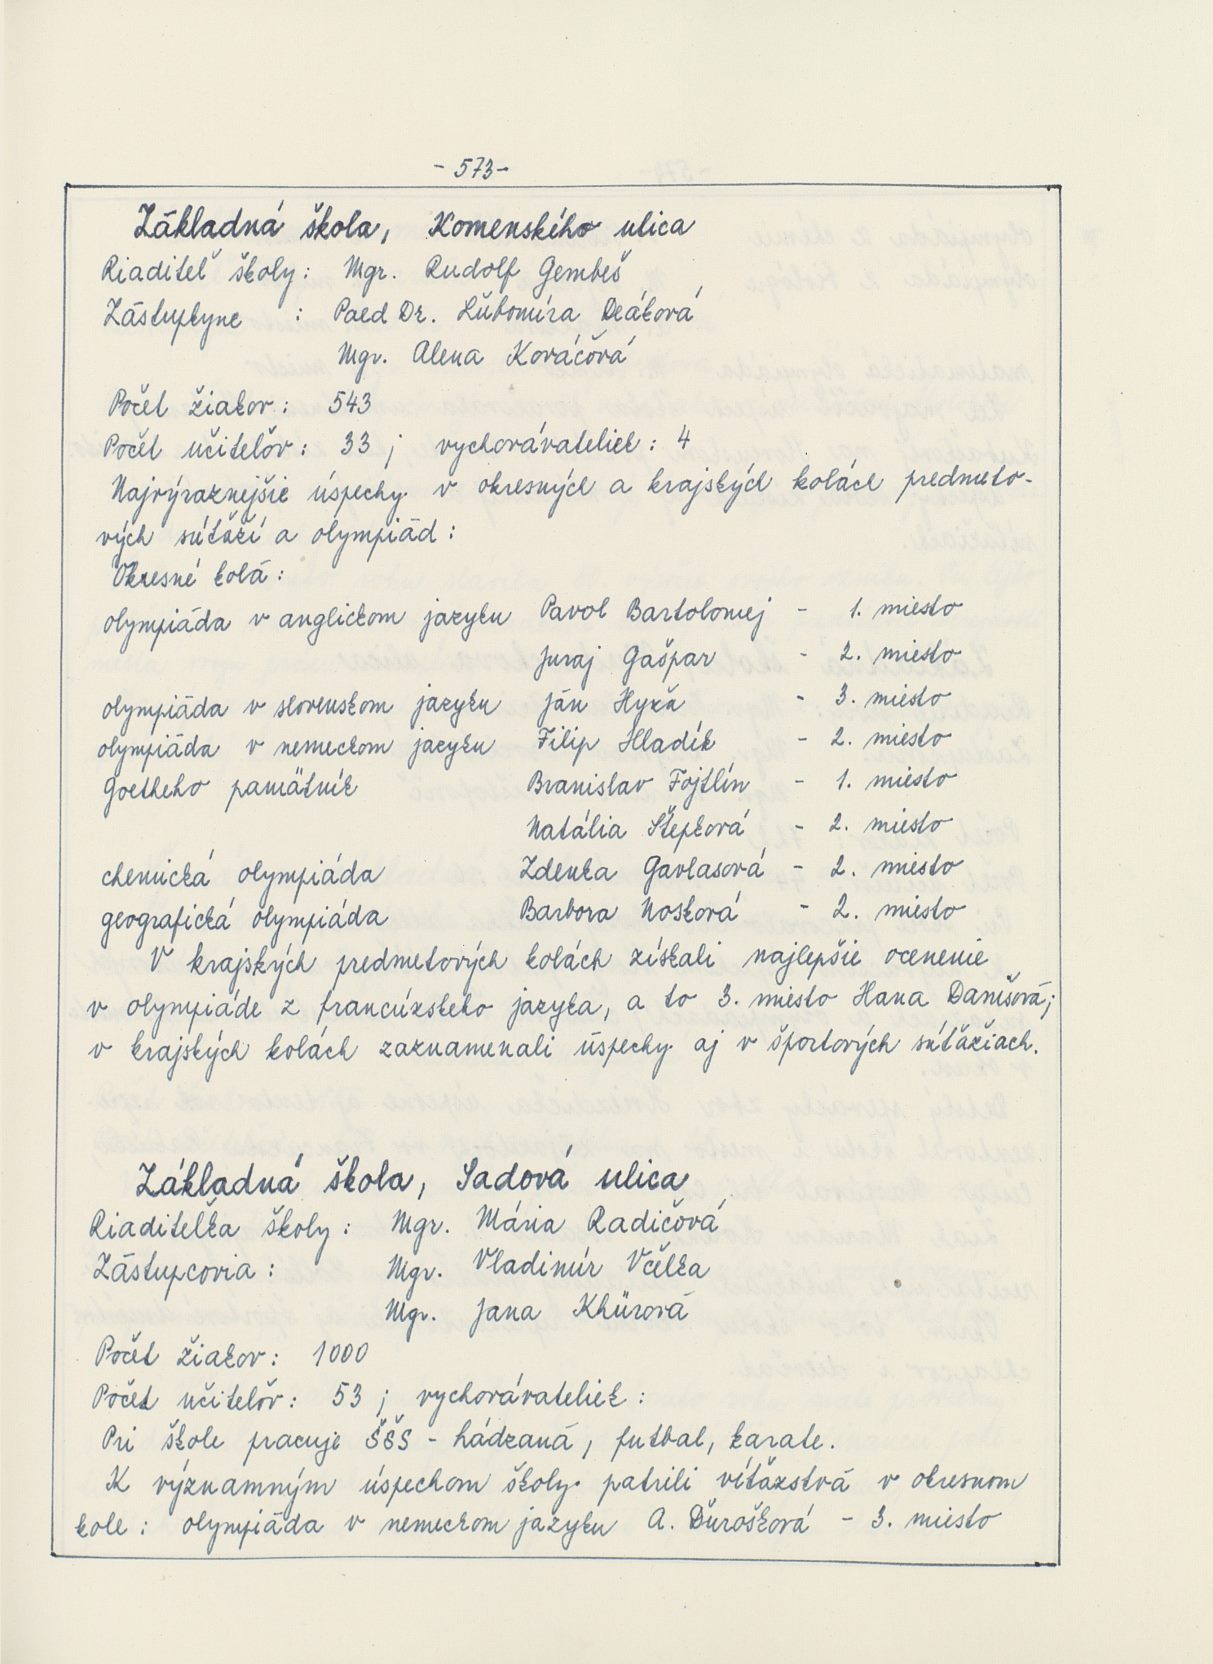 - 573 -
Základná škola, Komenského ulica
Riaditeľ školy: Mgr. Rudolf Gembeš
Zástupkyne : Paed Dr. Ľubomíra Deáková
Mgr. Alena Kováčová
Počet žiakov: 543
Počet učiteľov: 33; vychovávateliek: 4
Najvýraznejšie úspechy v okresných a krajských kolách predmeto-
vých súťaží a olympiád:
Okresné kolá:
olympiáda v anglickom jazyku Pavol Bartolomej - 1. miesto
Juraj Gašpar - 2. miesto
olympiáda v slovenskom jazyku Ján Hyža - 3. miesto
olympiáda v nemeckom jazyku Filip Hladík - 2. miesto
Goetheho pamätník Branislav Fojtlín - 1. miesto
Natália Štepková - 2. miesto
chemická olympiáda Zdenka Gavlasová - 2. miesto
geografická olympiáda Barbora Nosková - 2. miesto
V krajských predmetových kolách získali najlepšie ocenenie
v olympiáde z francúzskeho jazyka, a to 3. miesto Hana Danišová;
v krajských kolách zaznamenali úspechy aj v športových súťažiach.
Základná škola, Sadová ulica
Riaditeľka školy: Mgr. Mária Radičová
Zástupcovia: Mgr. Vladimír Včelka
Mgr. Jana Khürová
Počet žiakov: 1000
Počet učiteľov: 53; vychovávateliek:
Pri škole pracuje ŠŠS - hádzaná, futbal, karate.
K významným úspechom školy patrili víťazstvá v okresnom
kole: olympiáda v nemeckom jazyku A. Ďurošková - 3. miesto